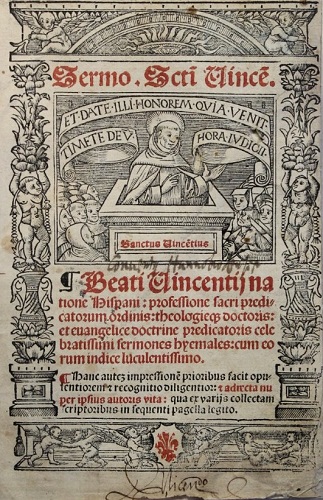 Sermo. Scti Uincē.
ET·DATE·ILLI·HONOREM·QVIA·VENIT·
TIMETE DEV̄
HORA·IVDICII
Sanctus Uincētius
¶ Beati Uincentij na
tione Hispani: professione sacri predi
catorum ordinis: theologieqʒ doctoris:
et euangelice doctrine predicatoris cele
bratissimi sermones hyemales: cum eo
rum indice luculentissimo.
¶ Hanc autē impressionē prioribus facit opu
lentiorem ⁊ recognitio diligentior: ⁊ adiecta nu
per ipsius autoris vita: qua ex varijs collectam
scriptoribus in sequenti pagella legito.